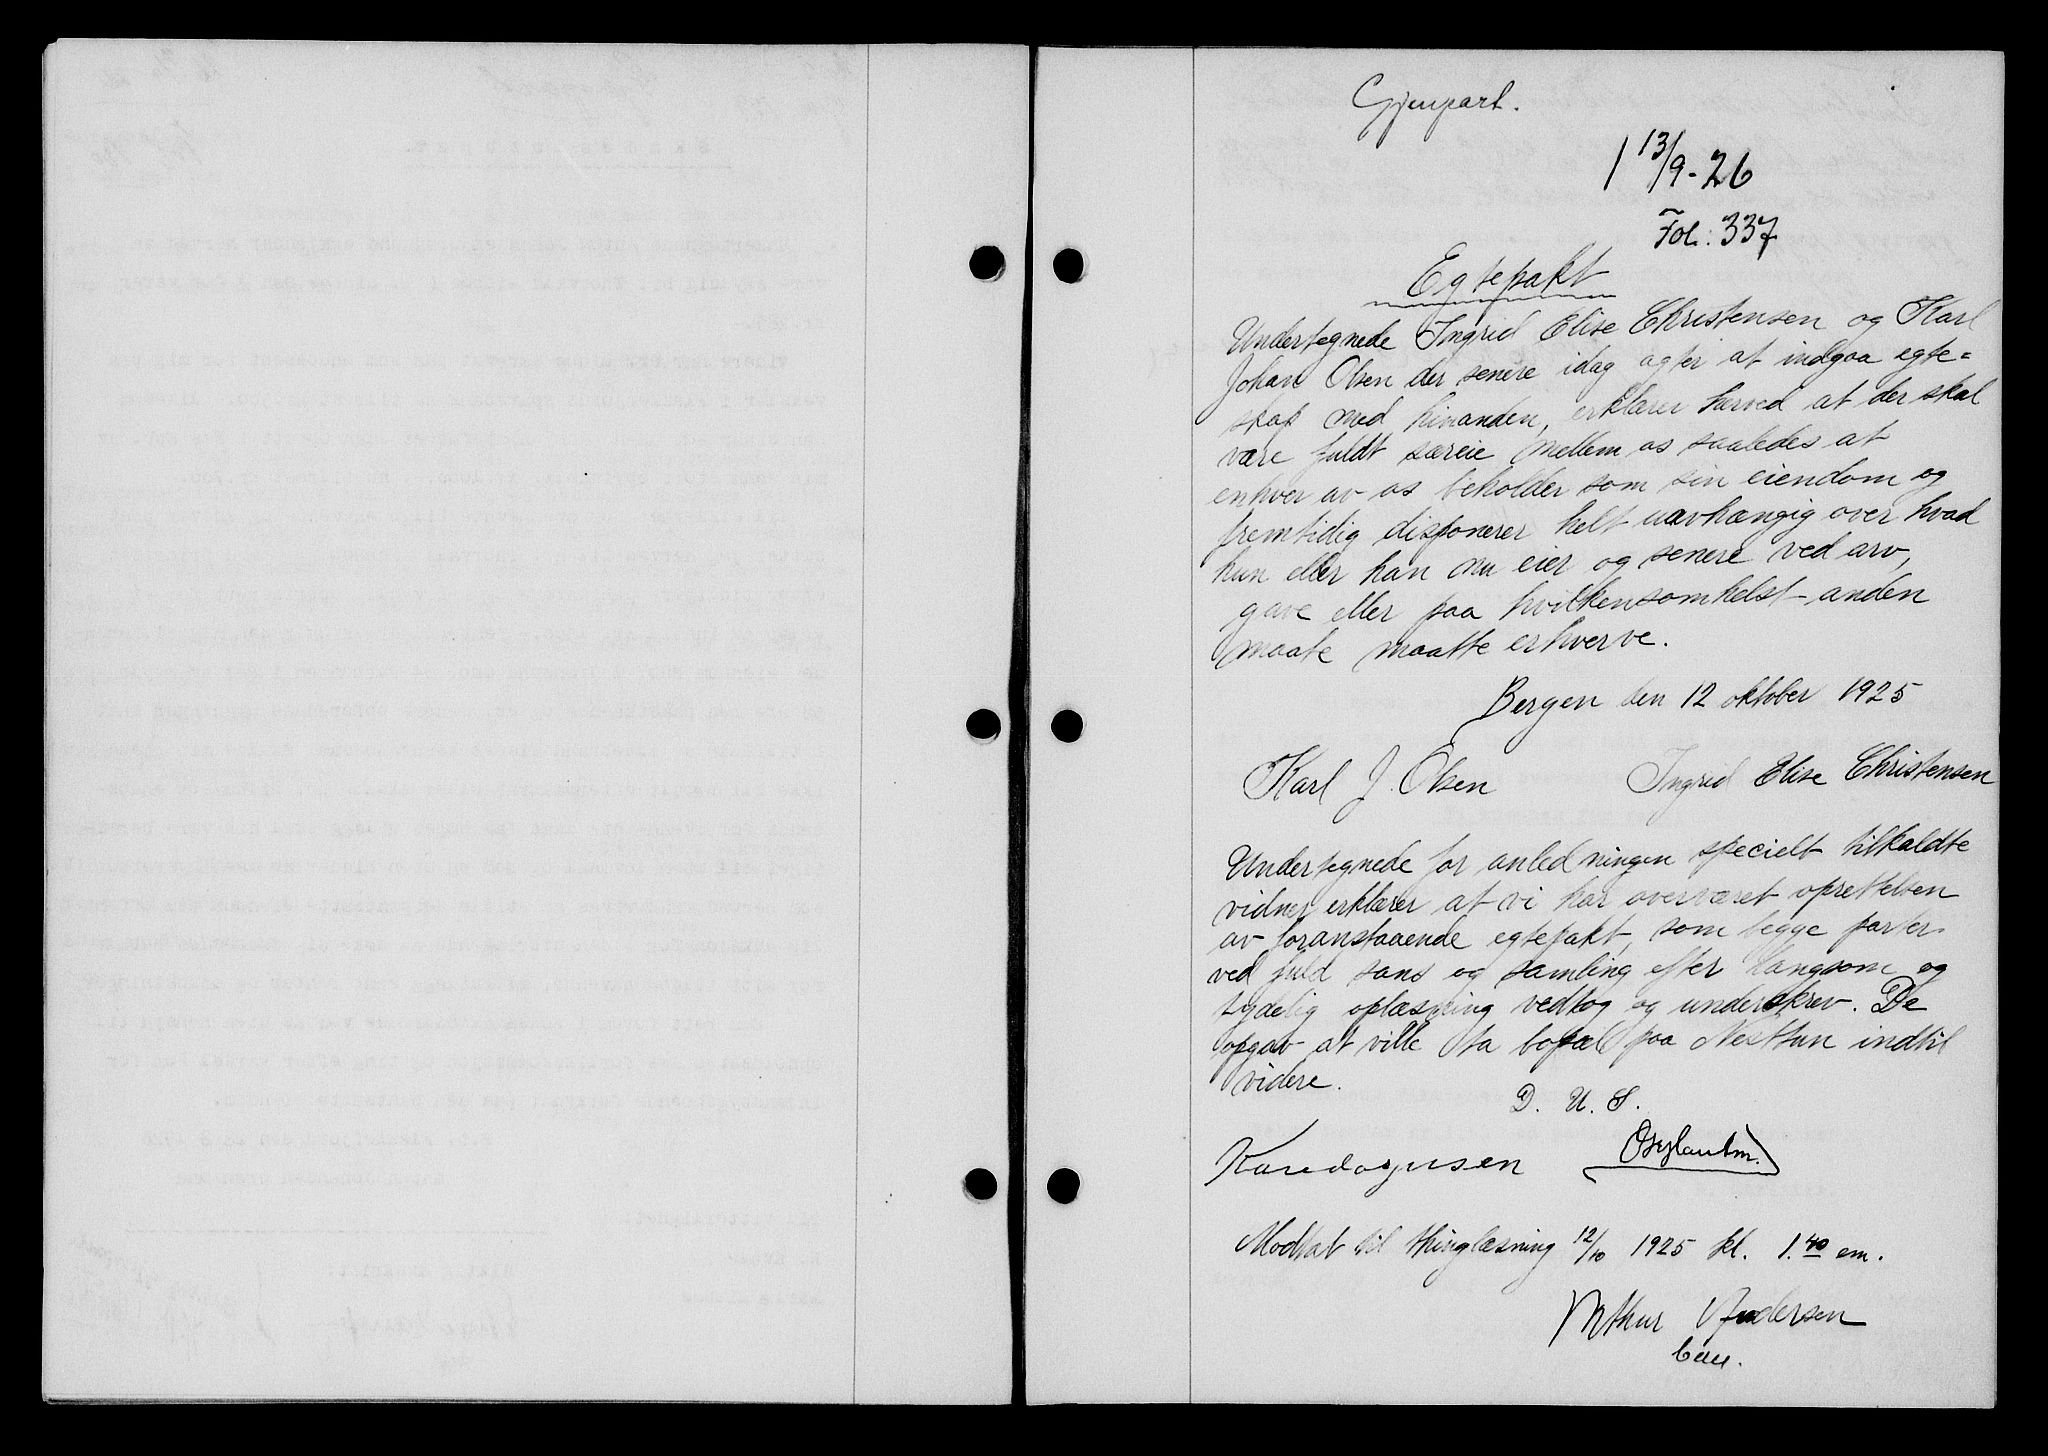 Gjenpart.
1 13/9-26
Fol: 337
Egtepakt
Undertegnede Ingrid Elise Christensen og Karl
Johan Olsen der senere idag agter at indgaa egte=
skap med hinanden, erklærer herved at der skal
være fuldt særeie mellem os saaledes at
enhver av os beholder som sin eiendom og
fremtidig disponerer helt uavhængig over hvad
hun eller han nu eier og senere ved arv,
gave eller paa hvilkensomhelst anden
maate maatte erhverve.
Bergen den 12 oktober 1925
Karl J. Olsen Ingrid Elise Christensen
Undertegnede for anledningen specielt tilkaldte
vidner erklærer at vi har overværet oprettelsen
av foranstaaende egtepakt, som begge parter
ved fuld sans og samling efter langsom og
tydelig oplæsning vedtog og underskrev. De
opgav at ville ta bopæl paa Nesttun indtil
videre.
D. U. S.
Mottat til thinglæsning 12/10 1925 kl. 1.40 em.
Arthur Andersen